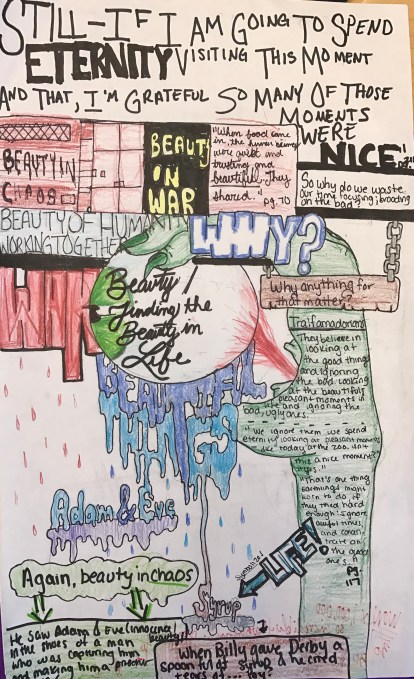 STILL-IF I AM GOING TO SPEND
ETERNITY VISITING THIS MOMENT
AND THAT, I'M GRATEFUL SO MANY OF THOSE
MOMENTS
WERE
NICE"
BEAUTY IN
CHAOS
BEAUTY
IN
WAR
"When food came
in, the human beings
were quiet and
trusting and
beautiful. They
shared."
pg. 70
So why do we waste
our time focusing; brooding
on the bad?
BEAUTY OF HUMANITY
WORKING TOGETHER
WHY?
Why anything for
that matter?
WAR
Beauty /
finding the
Beauty in
Life
BEAUTIFUL
THINGS
Tralfamadorians
They believe in
looking at
the good things
and ignoring
the bad. Looking
at the beautiful
pleasant moments in
life and ignoring the
bad, ugly ones.
"We ignore them. we spend
eternity looking at pleasant moments
like today at the zoo. Isn't
this a nice moment?"
"yes."
"That's one thing
Earthlings might
learn to do, if
they tried hard
enough: ignore
awful times,
and concen-
trate on
the good
ones."
pg.
117
Adam & Eve
LIFE!
Again, beauty in chaos
Syrup
He saw Adam & Eve (innocence/
beauty)
in the shoes of a man
who was capturing him
and making him a prisoner
When Billy gave Derby a
spoonful of syrup & he cried
tears of.... joy?